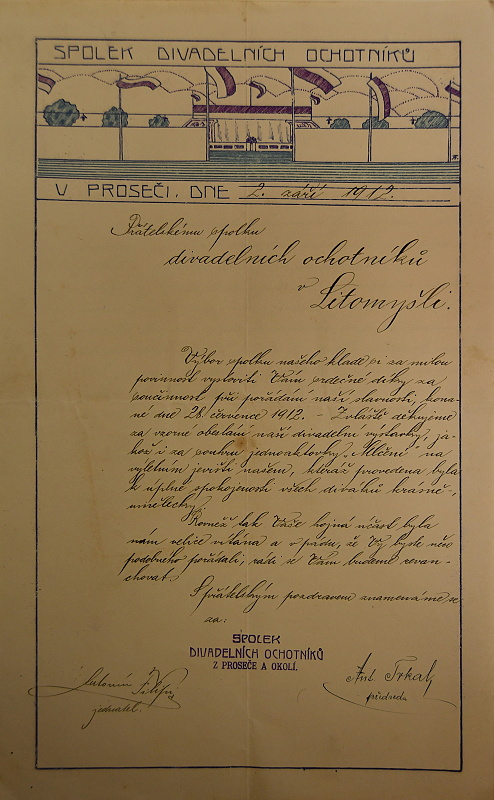 SPOLEK DIVADELNÍCH OCHOTNÍKŮ
V PROSEČI, DNE 2. září 1912.
Přátelskému spolku
divadelních ochotníků
v
Litomyšli.
Výbor spolku našeho klade si za milou
povinnost vysloviti Vám srdečné díky za
součinnost při pořádání naší slavnosti, kona-
né dne 28. července 1912. – Zvláště děkujeme
za vzorné obeslání naší divadelní výstavky, ja-
kož i za sehrání jednoaktovky „Mlčení“ na
výletním jevišti našem, kteráž provedena byla
k úplné spokojenosti všech diváků krásně-,
umělecky.
Rovněž tak Vaše hojná účast byla
nám velice vítána a v pádu, že Vy byste něco
podobného pořádali, rádi se Vám budeme revan-
chovat.
S přátelským pozdravem znamenáme se
za:
SPOLEK
DIVADELNÍCH OCHOTNÍKŮ
Z PROSEČE A OKOLÍ.
Ant. Trkal
předseda
Antonín
jednatel.